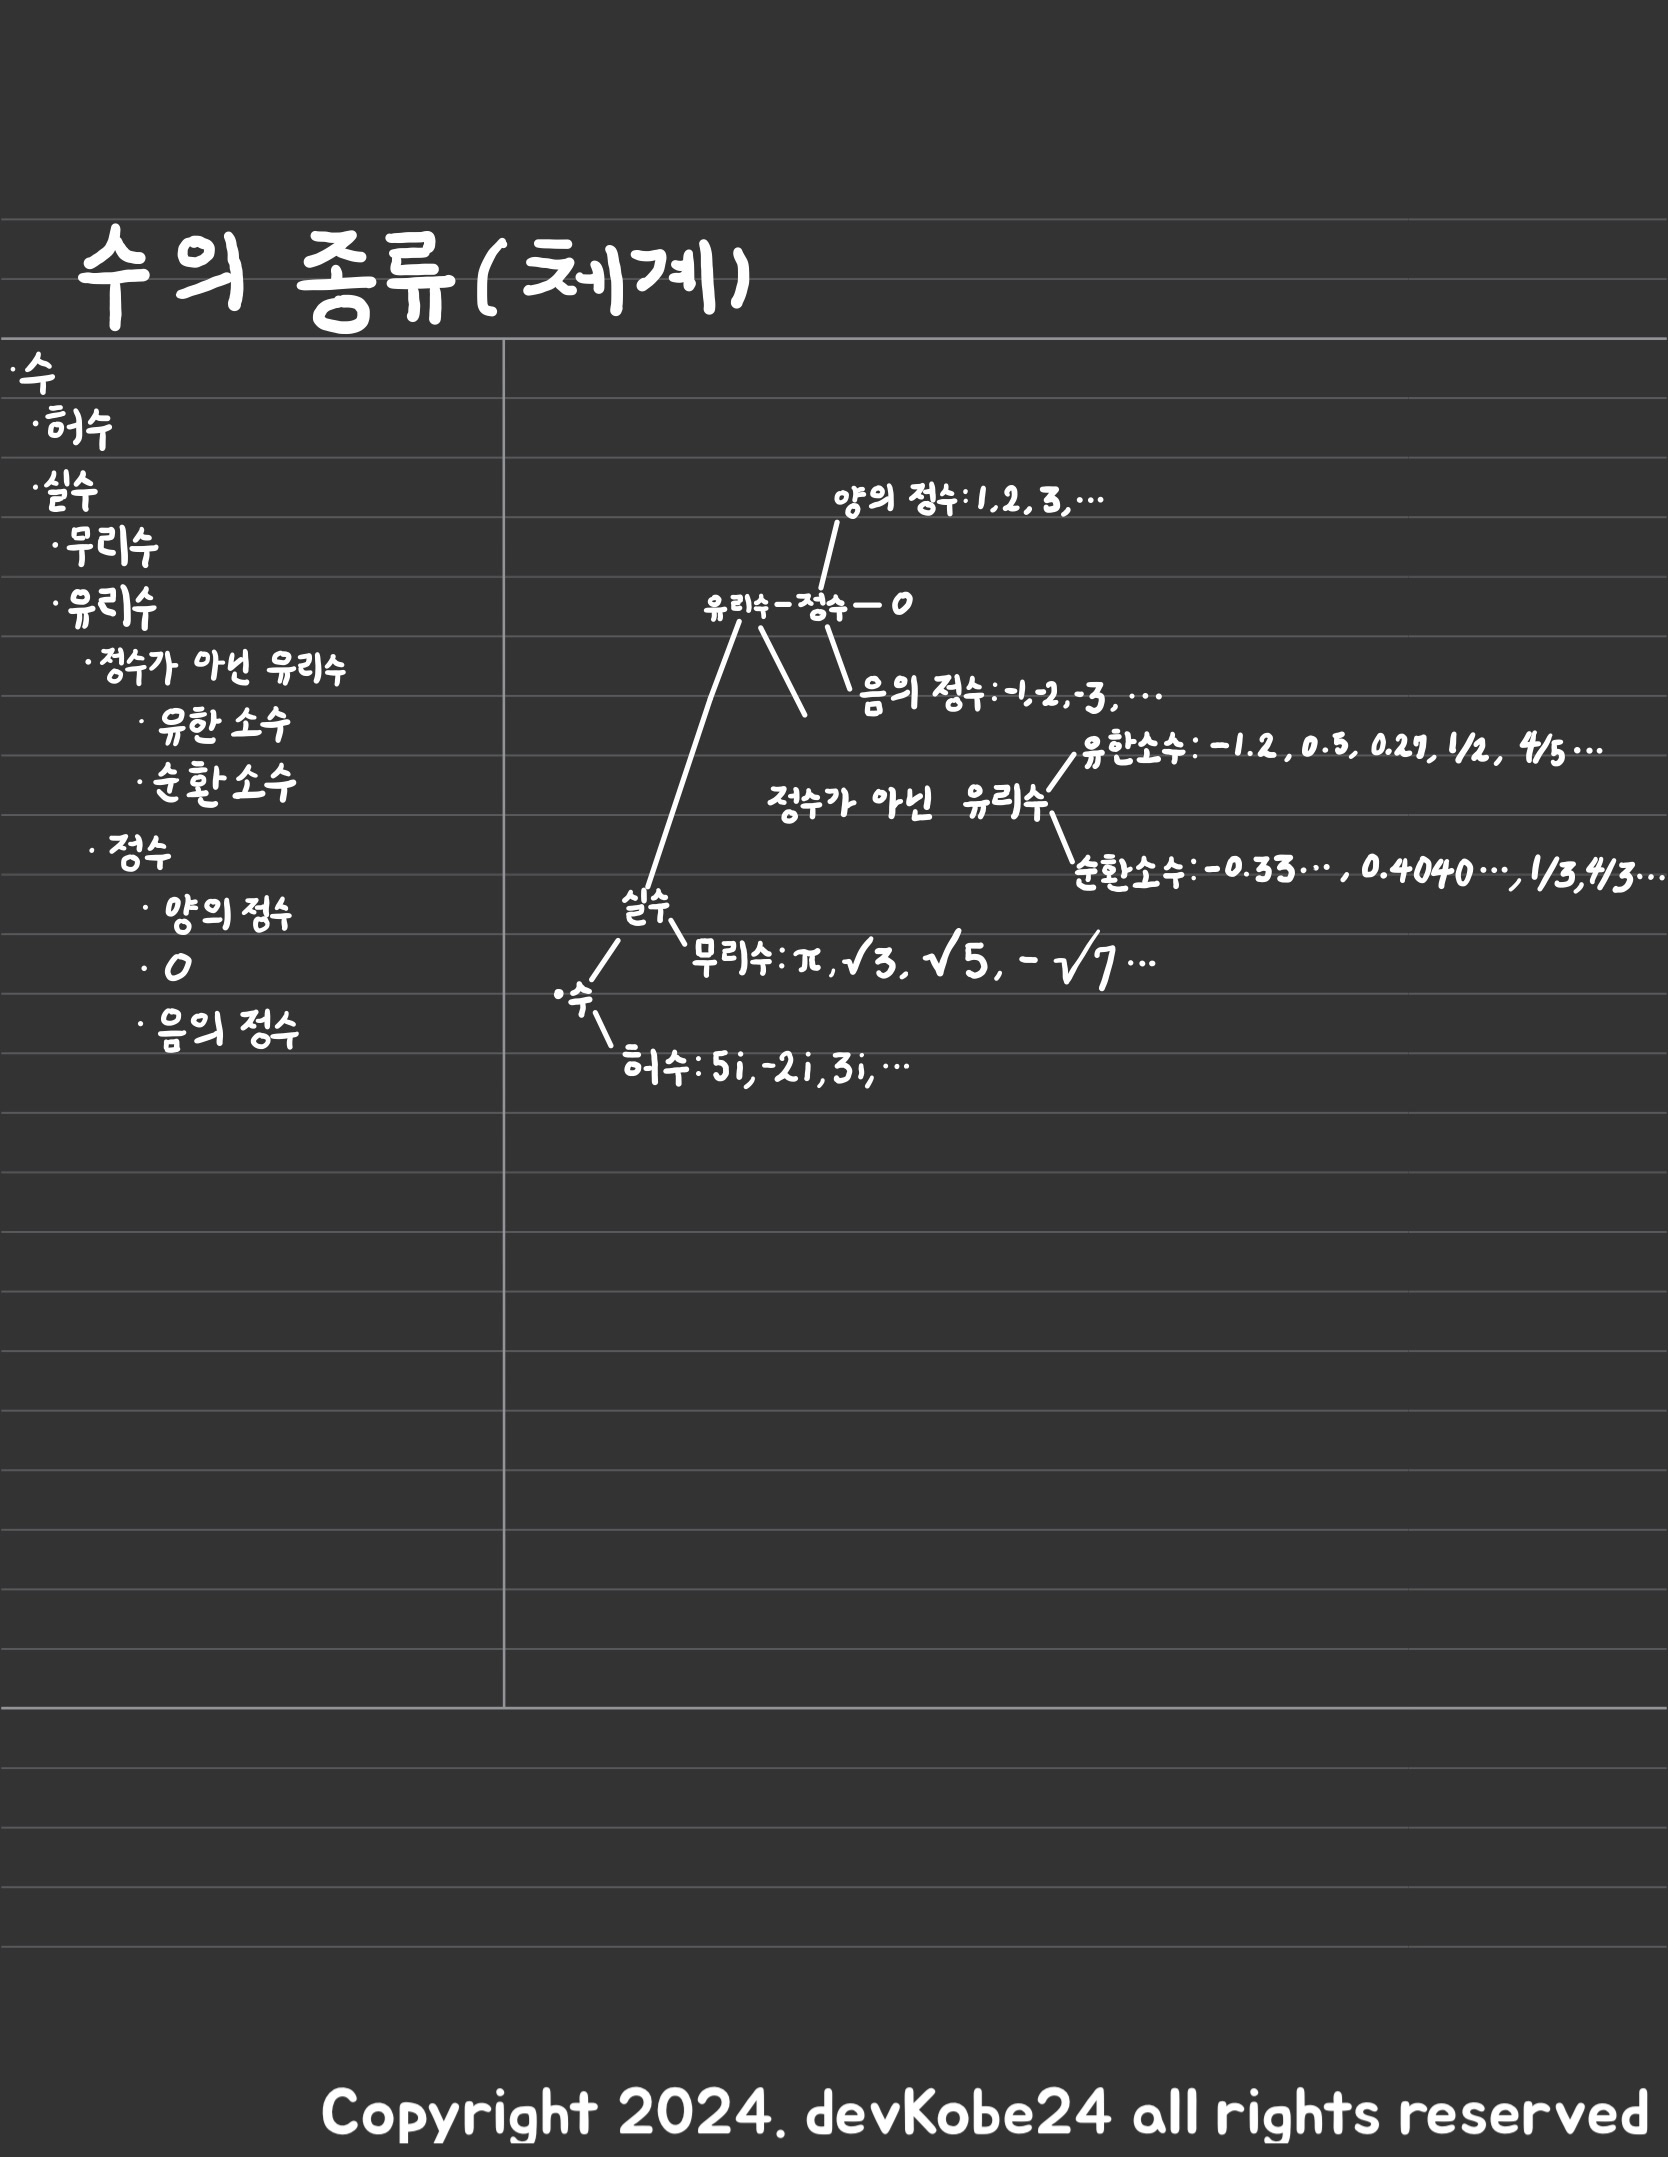 수의 종류(체계)
·수
·허수
·실수
·무리수
·유리수
·정수가 아닌 유리수
·유한소수
·순환소수
·정수
·양의 정수
·0
·음의 정수
양의 정수:1,2,3,…
유리수-정수-0
음의 정수:-1,-2,-3,…
유한소수:-1.2,0.5,0.27,1/2,4/5…
정수가 아닌 유리수
순환소수:-0.33…,0.4040…,1/3,4/3…
실수
무리수:π,√3,√5,-√7…
·수
허수:5i,-2i,3i,…
Copyright 2024. devKobe24 all rights reserved